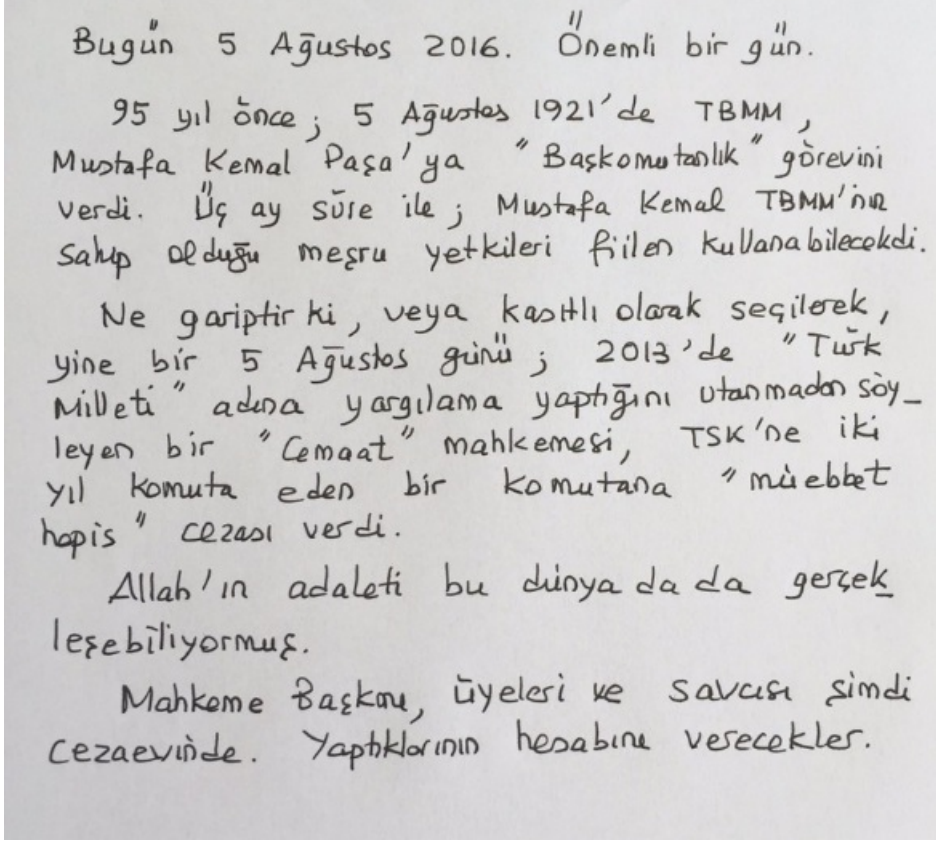 Bugün 5 Ağustos 2016. Önemli bir gün.
95 yıl önce; 5 Ağustos 1921'de TBMM,
Mustafa Kemal Paşa'ya "Başkomutanlık" görevini
verdi. Üç ay süre ile; Mustafa Kemal TBMM'inin
sahip olduğu meşru yetkileri fiilen kullanabilecekdi.
Ne gariptir ki, veya kasıtlı olarak seçilerek,
yine bir 5 Ağustos günü; 2013'de "Türk
Milleti" adına yargılama yaptığını utanmadan söy_
leyen bir "Cemaat" mahkemesi, TSK'ne iki
yıl komuta eden bir komutana "müebbet
hapis" cezası verdi.
Allah'ın adaleti bu dünya da da gerçek_
leşebiliyormuş.
Mahkeme Başkanı, üyeleri ve savcısı şimdi
cezaevinde. Yaptıklarının hesabını verecekler.